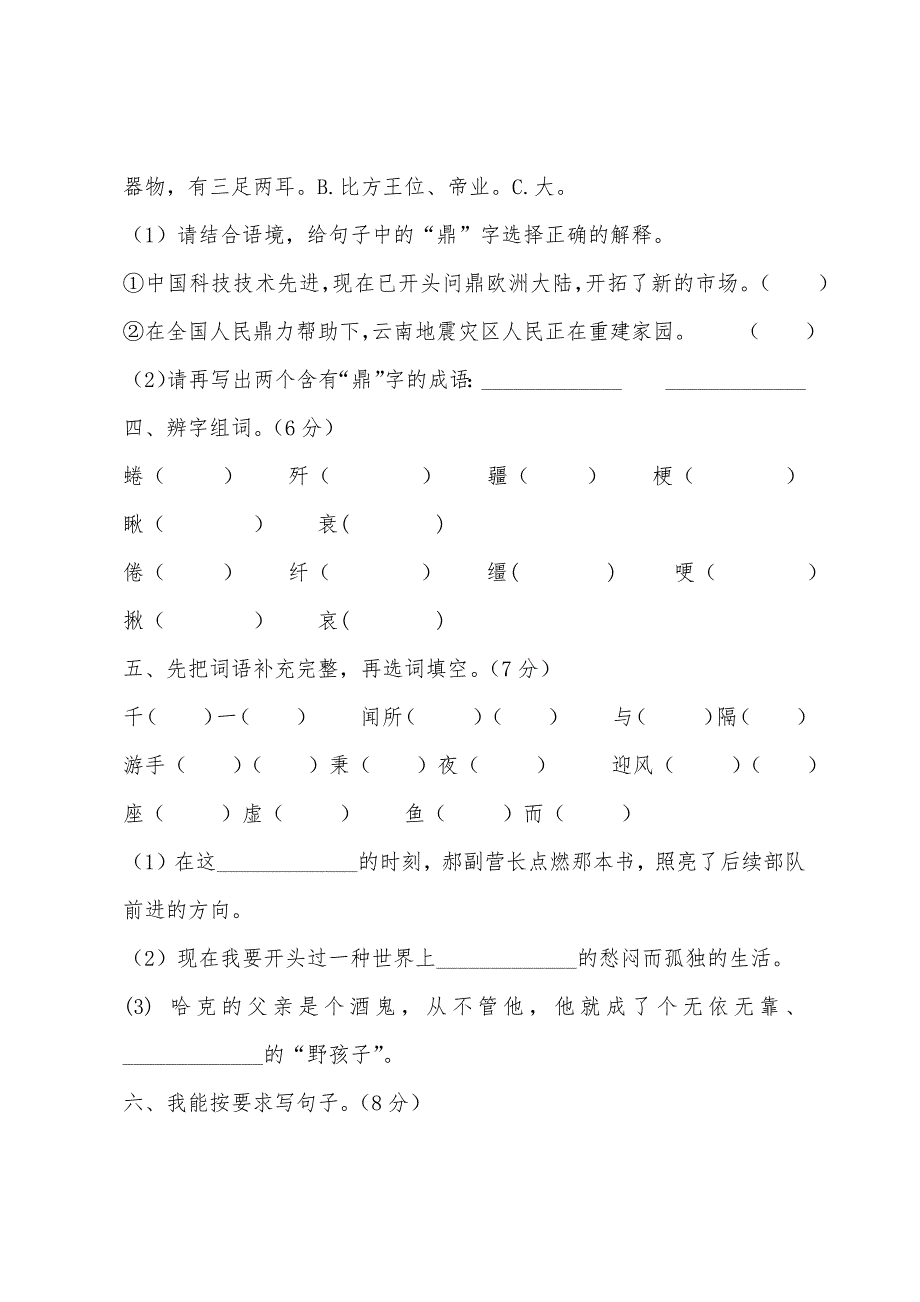 器物，有三足两耳。B.比方王位、帝业。C.大。
（1）请结合语境，给句子中的“鼎”字选择正确的解释。
①中国科技技术先进，现在已开头问鼎欧洲大陆，开拓了新的市场。（　　）
②在全国人民鼎力帮助下，云南地震灾区人民正在重建家园。　　（　　）
（2）请再写出两个含有“鼎”字的成语：_____________　_____________
四、辨字组词。（6 分）
蜷（　　）　歼（　　　）　疆（　　）　梗（　　　）
瞅（　　　）　衰(　　　)
倦（　　）　纤（　　　）　缰(　　　)　哽（　　　）
揪（　　　）　哀(　　　)
五、先把词语补充完整，再选词填空。（7 分）
千(　　)一(　　)　闻所(　　)(　　)　与(　　)隔(　　)
游手（　　）（　　）秉（　　）夜（　　）　迎风（　　）（　　）
座（　　）虚（　　）　鱼（　　）而（　　）
（1）在这_____________的时刻，郝副营长点燃那本书，照亮了后续部队
前进的方向。
（2）现在我要开头过一种世界上_____________的愁闷而孤独的生活。
(3) 哈克的父亲是个酒鬼，从不管他，他就成了个无依无靠、
_____________的“野孩子”。
六、我能按要求写句子。（8 分）